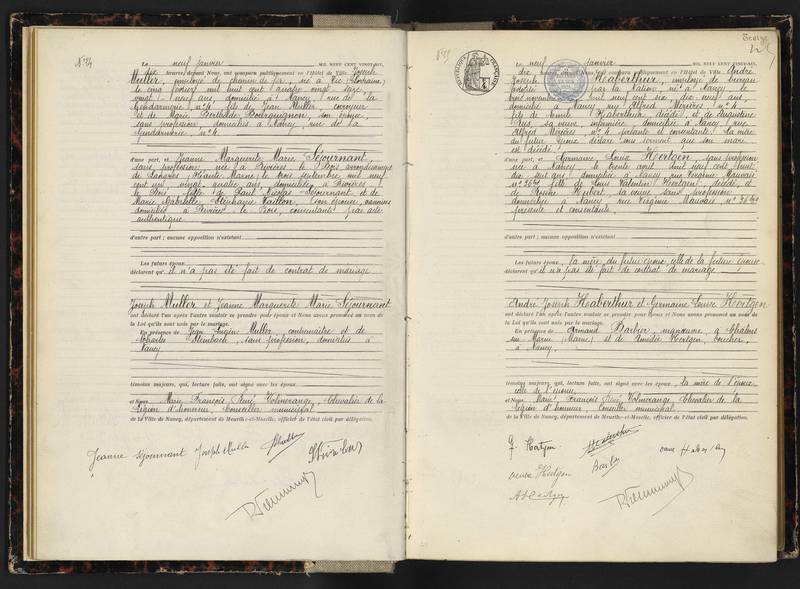 N°24
Le neuf janvier MIL NEUF CENT VINGT-SIX,
dix heures, devant Nous, ont comparu publiquement en l'Hôtel de Ville, Joseph
Muller, employé de chemin de fer, né à Vic (Lorraine)
le cinq février mil huit cent quatre vingt seize
vingt-neuf ans, domicilié à Nancy, rue de la
Gendarmerie, n° 4, fils de Jean Muller,
et de Marie Barthilde Bourguignon, son épouse,
sans profession, domiciliés à Nancy, rue de la
Gendarmerie, n° 4.
d'une part, et Jeanne Marguerite Marie Séjournant,
sans profession, née à Rivières le Bois, arrondissement
de Langres (Haute Marne) le trois septembre mil neuf
cent un, vingt quatre ans, domiciliée à Rivières
le Bois, fille de Paul Nicolas Séjournant et de
Marie Gabrielle Stéphanie Vaillon, son épouse,
domiciliés à Rivières le Bois, consentants par acte
authentique
d'autre part; aucune opposition n'existant
Les futurs époux
déclarent qu'il n'a pas été fait de contrat de mariage
Joseph Muller et Jeanne Marguerite Marie Séjournant
ont déclaré l'un après l'autre vouloir se prendre pour époux et Nous avons prononcé au nom de
la Loi qu'ils sont unis par le mariage.
En présence de Jean Eugène Muller, contremaître et de
Charles Steinbach, sans profession, domiciliés à
Nancy
témoins majeurs, qui, lecture faite, ont signé avec les époux
et Nous Marie François René Volmerange, Chevalier de la
Légion d'honneur, Conseiller municipal
de la Ville de Nancy, département de Meurthe-et-Moselle, officier de l'état civil par délégation.
Jeanne Séjournant Joseph Muller
N°25
Le neuf janvier MIL NEUF CENT VINGT-SIX,
dix heures, devant Nous, ont comparu publiquement en l'Hôtel de Ville, André
Joseph Haberthur, employé de bureau
adopté par la Nation, né à Nancy le
trois novembre mil neuf cent six, dix neuf ans,
domicilié à Nancy rue Alfred Mézières n° 4
fils de Emile Haberthur décédé, et de
sa veuve, infirmière, domiciliée à Nancy, rue
Alfred Mézières, n° 4, présente et consentante. La mère
du futur époux déclare sous serment que son mari
est décédé.
d'une part, et Germaine Louise Hertgen, sans profession
née à Nancy le trente août mil neuf cent huit
dix sept ans, domiciliée à Nancy rue Virginie Mauvais
n° 36 bis fille de Louis Valentin Hertgen, décédé, et
de Hubert, sa veuve, sans profession,
domiciliée à Nancy, rue Virginie Mauvais n° 36 bis
présente et consentante.
d'autre part; aucune opposition n'existant
Les futurs époux, la mère du futur époux, celle de la future épouse
déclarent qu'il n'a pas été fait de contrat de mariage
André Joseph Haberthur et Germaine Louise Hertgen
ont déclaré l'un après l'autre vouloir se prendre pour époux et Nous avons prononcé au nom de
la Loi qu'ils sont unis par le mariage.
En présence de Armand Barbier, à Châlons
sur Marne (Marne) et de Amédée Hertgen, boucher,
à Nancy.
témoins majeurs, qui, lecture faite, ont signé avec les époux, la mère de l'époux
celle de l'épouse
et Nous Marie François René Volmerange Chevalier de la
Légion d'honneur, Conseiller municipal
de la Ville de Nancy, département de Meurthe-et-Moselle, officier de l'état civil par délégation.
G. Hertgen Haberthur
veuve Hertgen